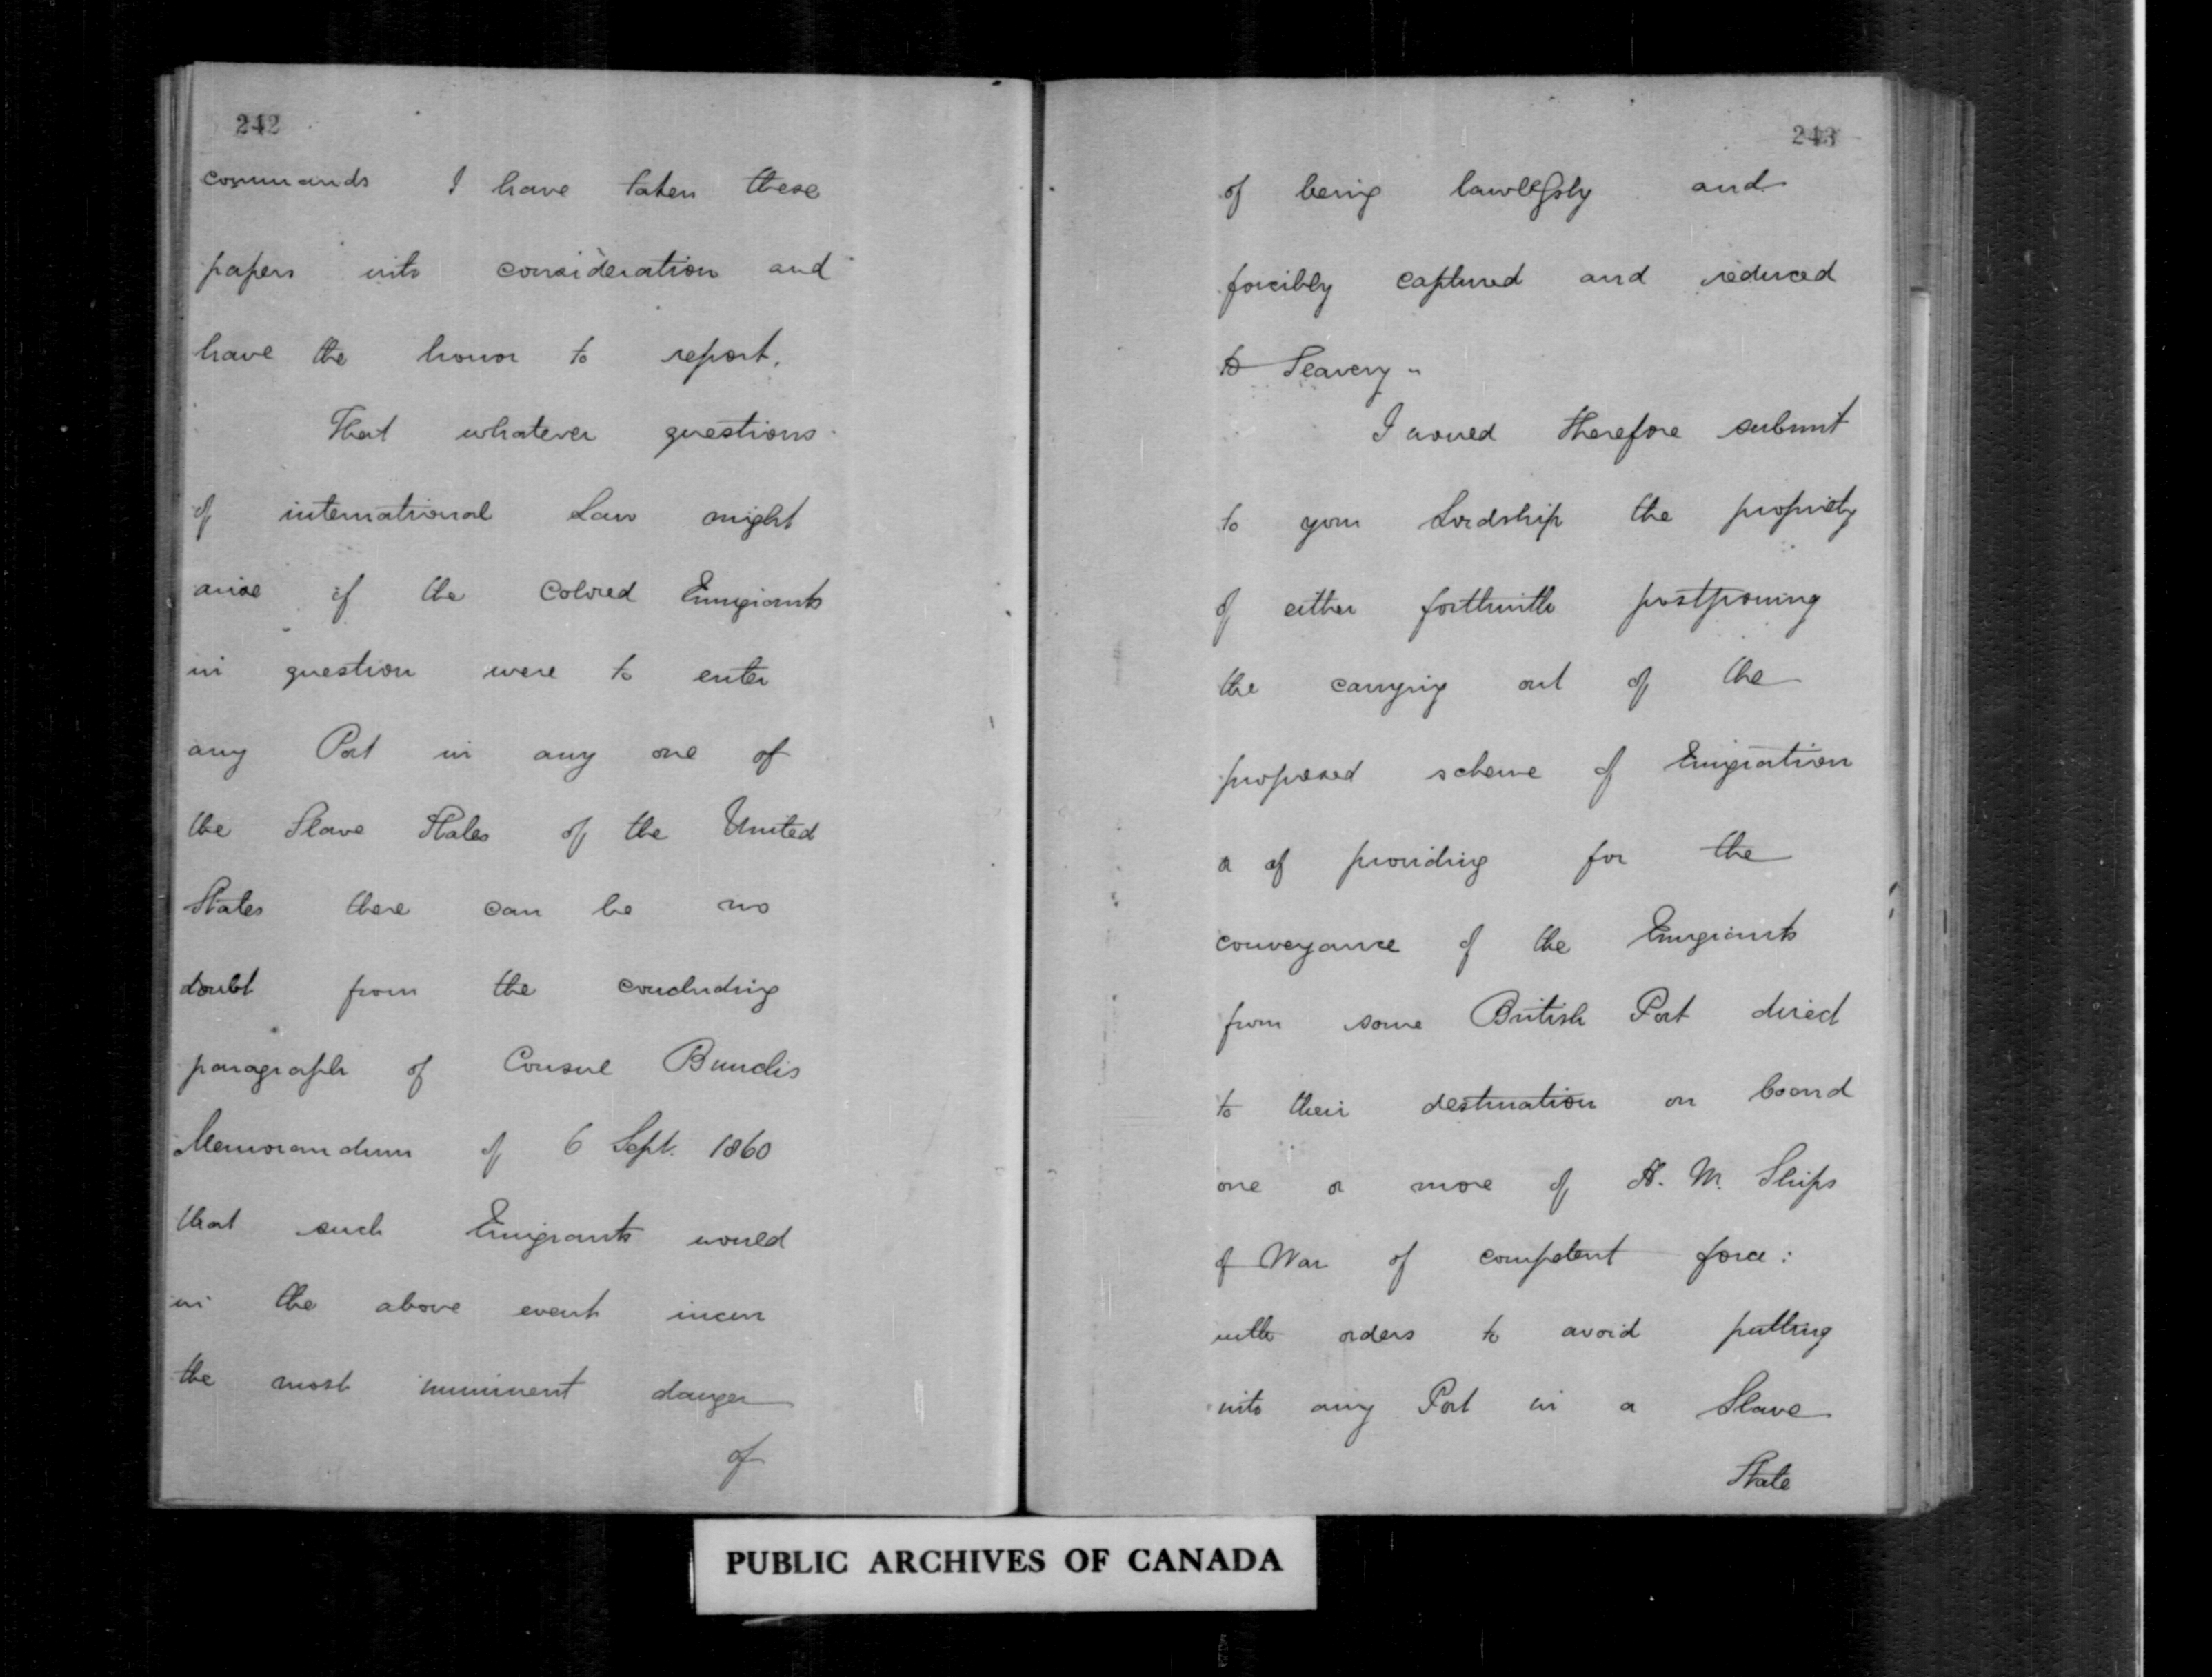 242
commands I have taken these
papers into consideration and
have the honor to report.
That whatever questions
of international Law might
arise if the Colored Emigrants
in question were to enter
any Port in any one of
the Slave States of the United
States there can be no
doubt from the concluding
paragraph of Consul Bunch's
Memorandum of 6 Sept. 1860
that such Emigrants would
in the above event incur
the most imminent danger
of
243
of being lawlessly and
forcibly captured and reduced
to Slavery.
I would therefore submit
to your Lordship the propriety
of either forthwith postponing
the carrying out of the
proposed scheme of Emigration
or of providing for the
conveyance of the Emigrants
from some British Port direct
to their destination on board
one or more of H. M. Ships
of War of competent force:
with orders to avoid putting
into any Port in a Slave
State
PUBLIC ARCHIVES OF CANADA